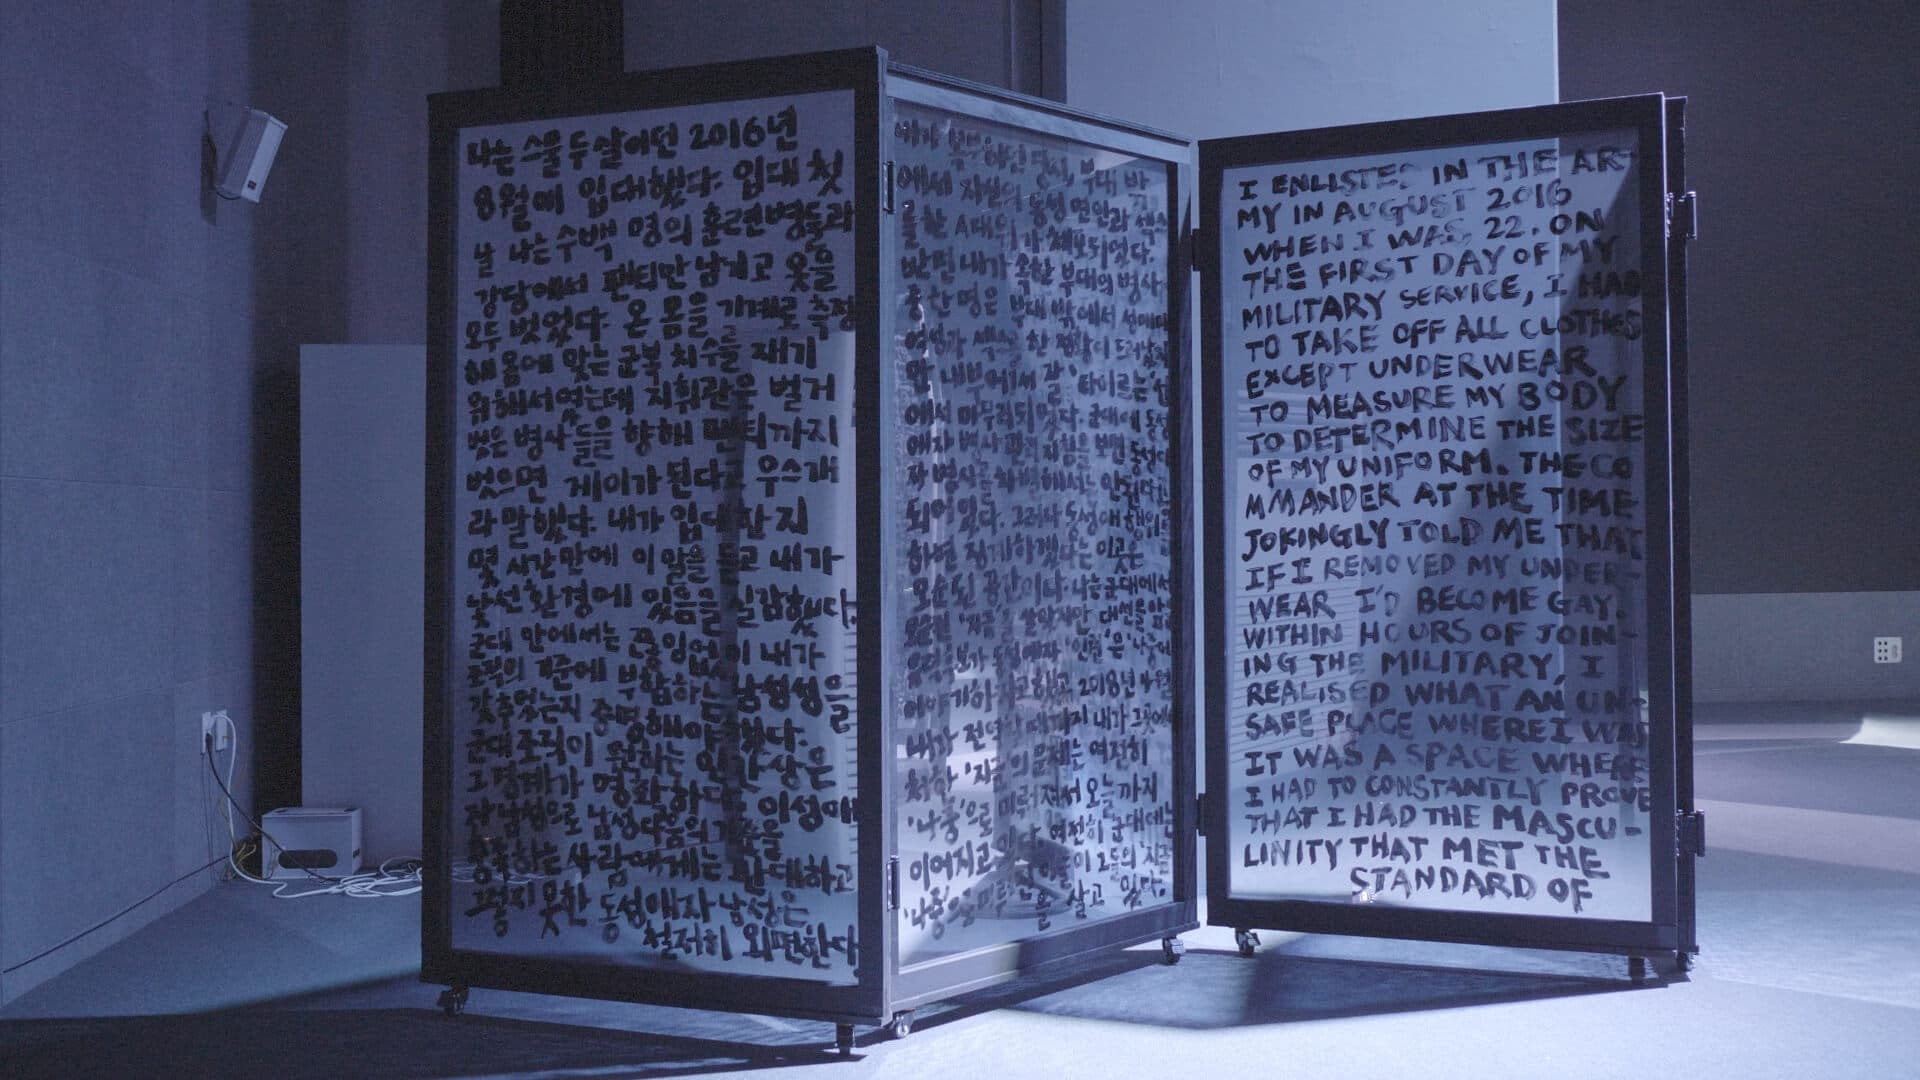 나는 스물 두 살이던 2016년
8월에 입대했다. 입대 첫
날 나는 수백 명의 훈련병들과
강당에서 팬티만 남기고 옷을
모두 벗었다. 온 몸을 기계로 측정
해 몸에 맞는 군복 치수를 재기
위해서였는데 지휘관은 벌거
벗은 병사들을 향해 팬티까지
벗으면 게이가 된다고 우스개
라 말했다. 내가 입대한 지
몇 시간만에 이 말을 듣고 내가
낯선 환경에 있음을 실감했다.
군대 안에서는 끊임없이 내가
조직의 기준에 부합하는 남성성을
갖추었는지 증명해야 했다.
군대 조직이 원하는 인간상은
그 경계가 명확하다. 이성애
자 남성으로 남성다움의 기준을
충족하는 사람에게는 관대하고
그렇지 못한 동성애자 남성은
철저히 외면한다.
내가 복무하던 당시, 부대 밖
에서 자신의 동성 연인과 섹스
를 한 A대위가 체포되었다.
반면 내가 속한 부대의 병사
중 한 명은 부대 밖에서 성매매
여성과 섹스를 한 정황이 드러났지
만 내부에서 잘 '타이르는' 선
에서 마무리되었다. 군대에 동성
애자 병사 관리 지침을 보면 동성애
자 병사를 차별해서는 안된다고
되어 있다. 그러나 동성애 행위를
하면 징계하겠다는 이곳은
모순된 공간이다. 나는 군대에서
'지금'을 살았지만 대선을 앞둔
동성애자 '인권'은 '나중에'
이야기하자고 했고 2018년 4월
내가 전역할 때까지 내가 그곳에서
처한 '지금'의 문제는 여전히
'나중'으로 미뤄져서 오늘까지
이어지고 있다. 여전히 군대에는
이들이 그들의 '지금'
'나중'으로 미루는 을 살고 있다.
I ENLISTED IN THE AR-
MY IN AUGUST 2016
WHEN I WAS 22. ON
THE FIRST DAY OF MY
MILITARY SERVICE, I HAD
TO TAKE OFF ALL CLOTHES
EXCEPT UNDERWEAR
TO MEASURE MY BODY
TO DETERMINE THE SIZE
OF MY UNIFORM. THE CO
MMANDER AT THE TIME
JOKINGLY TOLD ME THAT
IF I REMOVED MY UNDER-
WEAR I'D BECOME GAY.
WITHIN HOURS OF JOIN-
ING THE MILITARY, I
REALISED WHAT AN UN-
SAFE PLACE WHERE I WAS
IT WAS A SPACE WHERE
I HAD TO CONSTANTLY PROVE
THAT I HAD THE MASCU-
LINITY THAT MET THE
STANDARD OF